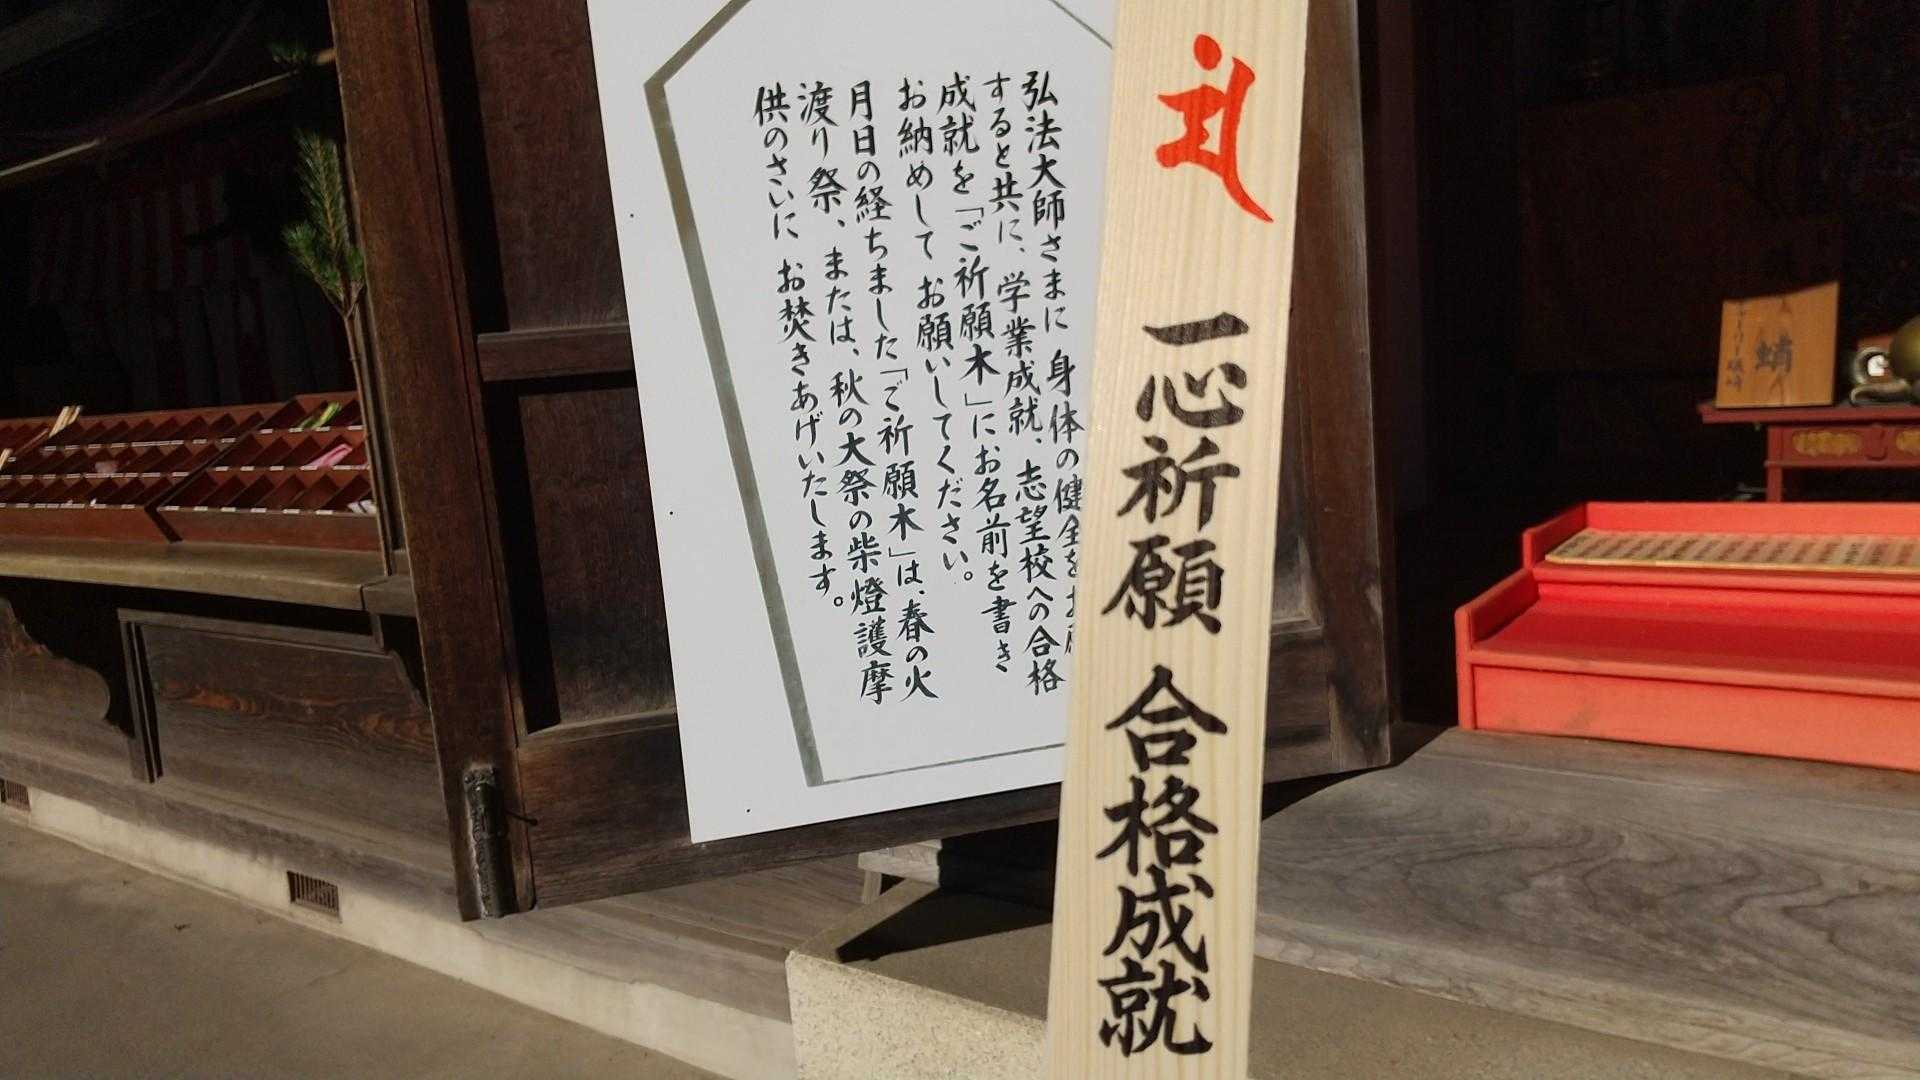 一心祈願 合格成就
弘法大師さまに 身体の健全をお願
すると共に、学業成就、志望校への合格
成就を「ご祈願木」にお名前を書き
お納めして お願いしてください。
月日の経ちました「ご祈願木」は、春の火
渡り祭、または、秋の大祭の柴燈護摩
供のさいに お焚きあげいたします。
蛸